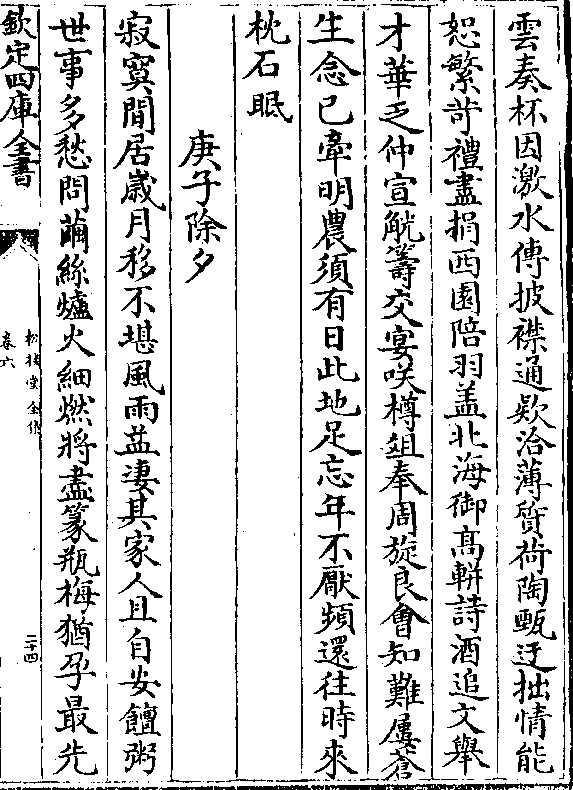 雲奏杯因激水傳披襟通欵洽薄質荷陶甄迂拙情能
恕繁苛禮盡捐西園陪羽盖北海御髙軿詩酒追文舉
才華乏仲宣觥籌交宴咲樽俎奉周旋良㑹知難屢蒼
生念已牽明農須有日此地足忘年不厭頻還往時來
枕石眠
庚子除夕
寂寞閒居歳月移不堪風雨益凄其家人且自安饘粥
世事多愁問繭絲爐火細燃將盡篆瓶梅猶孕最先
欽定四庫全書
卷六
二十四